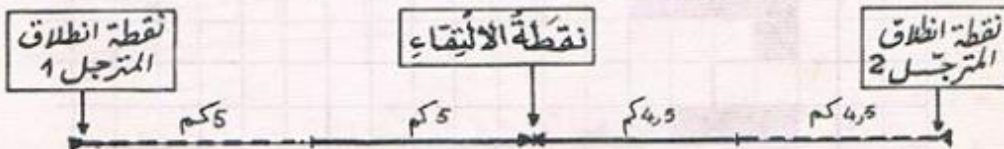 نقطة انطلاق
المترجل 1
نقطَةُ الالْتِقَاءِ
نقطة انطلاق
المترجّل 2
5كم
5كم
4,5كم
4,5كم